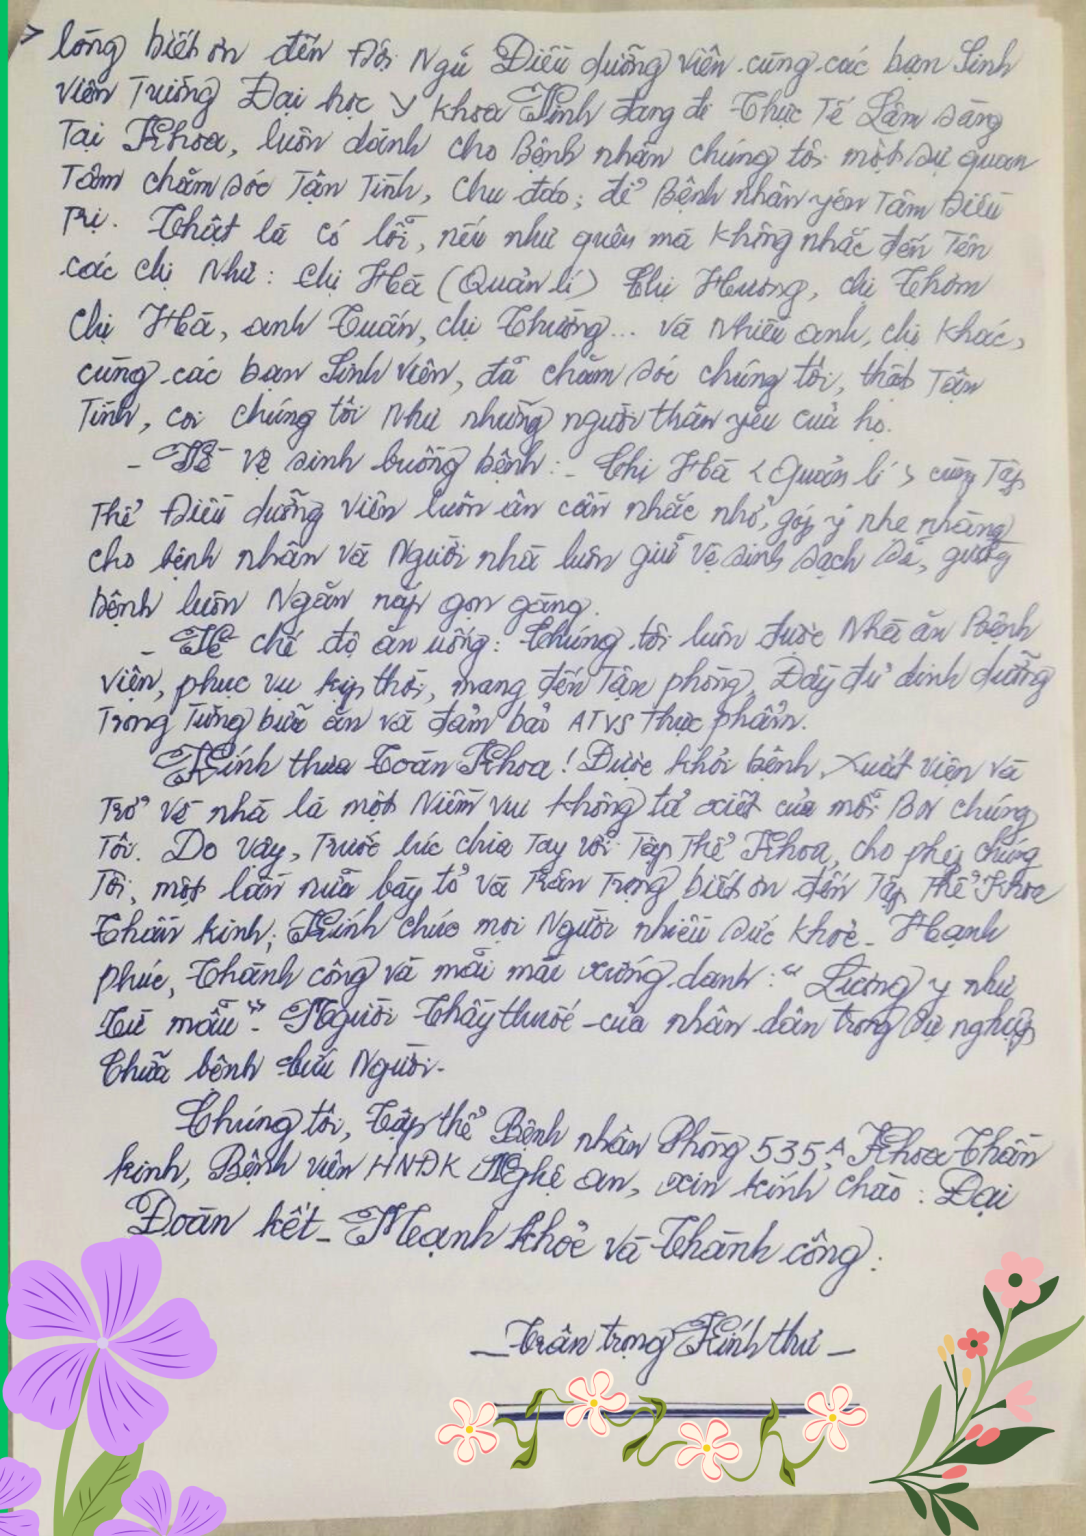 lòng biết ơn đến Đội Ngũ Điều dưỡng viên cùng các bạn Sinh
viên Trường Đại học Y Khoa Vinh đang đi Thực Tế Lâm sàng
Tại Khoa, luôn dành cho Bệnh nhân chúng tôi một sự quan
Tâm chăm sóc Tận Tình, Chu đáo; để Bệnh nhân yên Tâm Điều
Trị. Thật là có lỗi, nếu như quên mà không nhắc đến Tên
các chị Như: Chị Hà (Quản lí) Chị Hương, chị Thơm
Chị Hà, anh Tuấn, chị Thường... và Nhiều anh, chị khác,
cùng các bạn Sinh viên, đã chăm sóc chúng tôi, thật Tận
Tình, coi chúng tôi Như những người thân yêu của họ.
- Về vệ sinh buồng bệnh: - Chị Hà < Quản lí > cùng Tập
Thể Điều dưỡng viên luôn ân cần nhắc nhở, góp ý nhẹ nhàng
cho bệnh nhân và Người nhà luôn giữ vệ sinh sạch sẽ, giường
bệnh luôn Ngăn nắp gọn gàng.
- Về chế độ ăn uống: Chúng tôi luôn được Nhà ăn Bệnh
viện, phục vụ kịp thời, mang đến Tận phòng, Đầy đủ dinh dưỡng
Trong Từng bữa ăn và đảm bảo ATVS thực phẩm.
Kính thưa Toàn Khoa! Được khỏi bệnh, Xuất viện và
Trở về nhà là một Niềm vui không tả xiết của mỗi BN chúng
Tôi. Do vậy, Trước lúc chia Tay với Tập Thể Khoa, cho phép chúng
Tôi, một lần nữa bày tỏ và Trân Trọng biết ơn đến Tập Thể Khoa
Thần kinh; Kính chúc mọi Người nhiều sức khoẻ - Hạnh
phúc, Thành công và mãi mãi xứng danh: "Lương y như
Từ mẫu" - Người Thầy thuốc - của nhân dân trong sự nghiệp
Chữa bệnh cứu Người.
Chúng tôi, Tập thể Bệnh nhân Phòng 535A Khoa Thần
kinh, Bệnh viện HNĐK Nghệ an, xin kính chào: Đại
Đoàn kết - Mạnh khoẻ và Thành công:
- Trân trọng Kính thư -